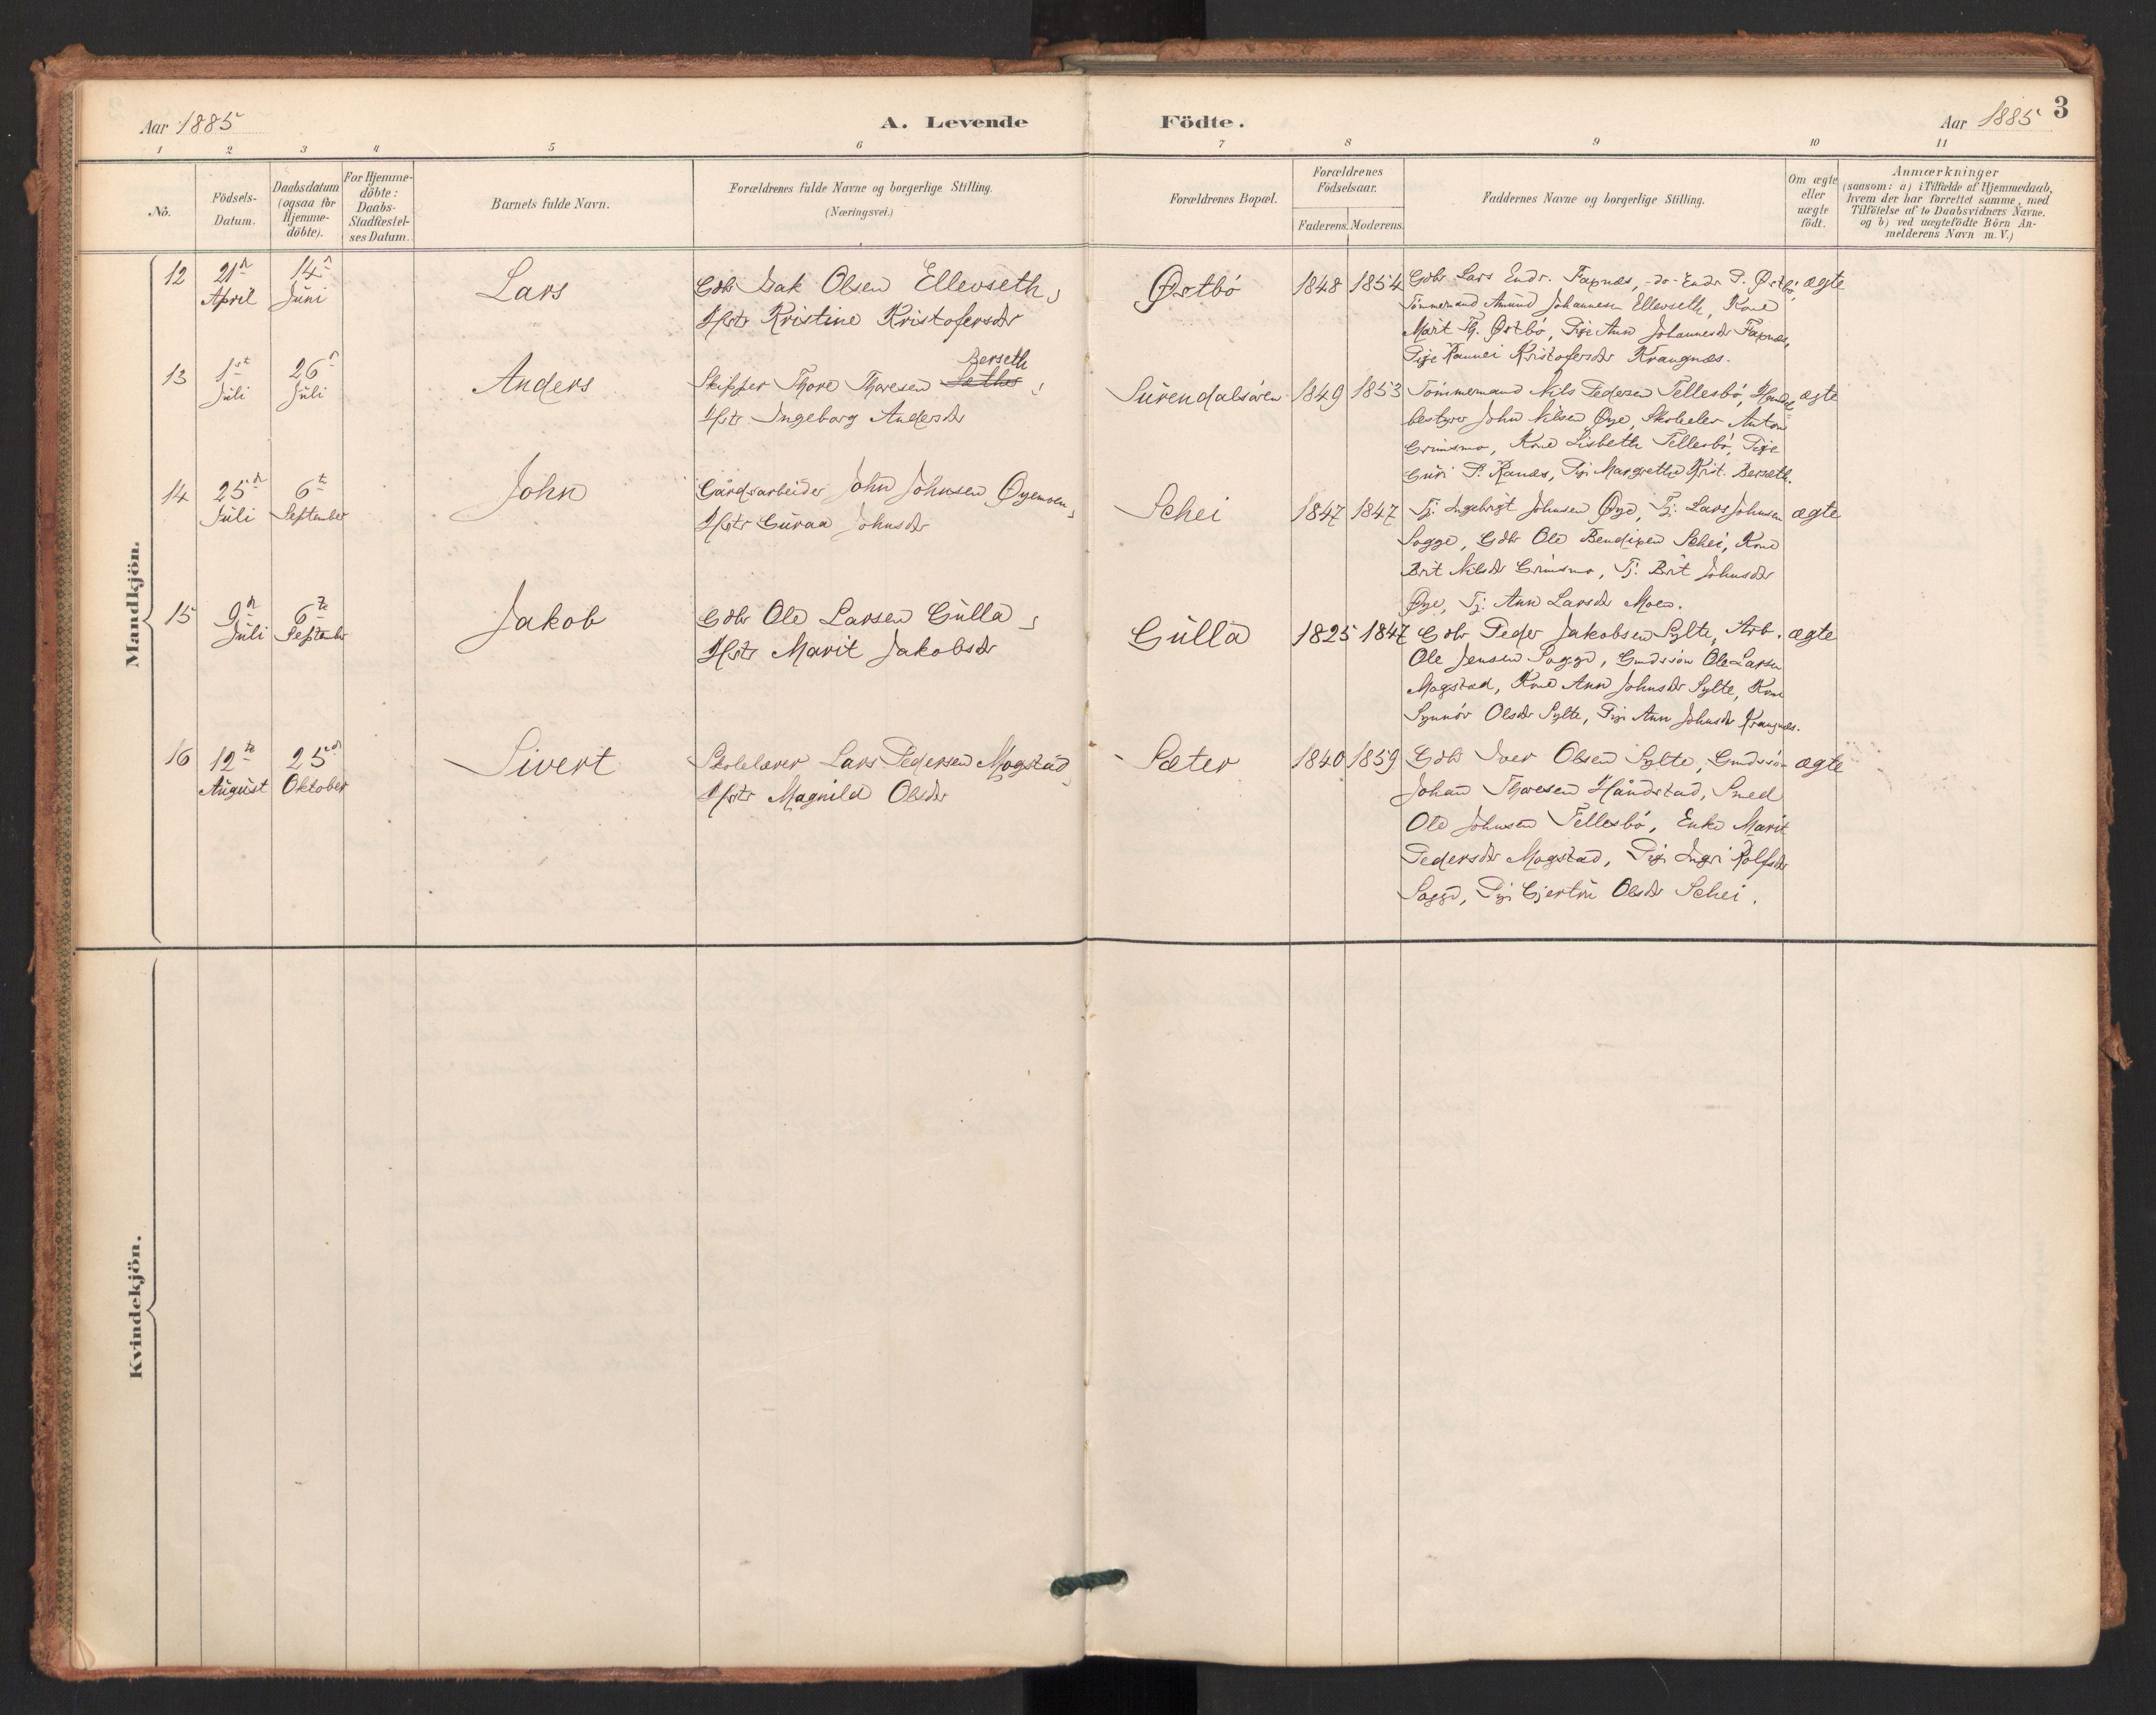 3
Aar 1885
A. Levende Födte.
Aar 1885
1 2 3 4 5 6 7 8 9 10 11
No.
Födsels-
Datum.
Daabsdatum
(ogsaa for
Hjemme-
döbte).
For Hjemme-
döbte:
Daabs-
Stadfæstel-
ses Datum.
Barnets fulde Navn.
Forældrenes fulde Navne og borgerlige Stilling.
(Næringsvei.)
Forældrenes Bopæl.
Forældrenes
Födselsaar.
Faderens. Moderens.
Faddernes Navne og borgerlige Stilling.
Om ægte
eller
uægte
födt.
Anmærkninger
(saasom: a) i Tilfælde af Hjemmedaab,
hvem der har forrettet samme, med
Tilföielse af to Daabsvidners Navne.
og b) ved uægtefödte Börn An-
melderens Navn m. V.)
Mandkjön.
12
21de
April
14de
Juni
Lars
Gbr Isak Olsen Ellevseth,
Hstr Kristine Kristofersdr
Østbö
1848 1854
Gbr Lars Endr. Faxnæs, -do- Endr. P. Østbö,
Tömmermand Amund Johannesen Ellevseth, Kone
Marit Th. Østbö, Pige Ann Johannesdr Faxnæs,
Pige Rannei Kristofersdr Krangnæs.
ægte
13
1ste
Juli
26de
Juli
Anders
Berseth
Skipper Thore Thoresen Sæther,
Hstr Ingeborg Andersdr
Surendalsören
1849 1853
Tömmermand Nils Pedersen Tellesbö, Handels-
bestyrer John Nilsen Øye, Skoleelev Anton
Grimsmo, Kone Lisbeth Tellesbö, Pige
Guri P. Ranæs, Pige Margrethe Krist. Berseth.
ægte
14
25de
Juli
6te
September
John
Gårdsarbeider John Johnsen Øyemoen,
Hstr Guraa Johnsdr
Schei
1847 1847
Tj. Ingebrigt Johnsen Øye, Tj. Lars Johnsen
Sogge, Gbr Ole Bendixen Schei, Kone
Brit Nilsdr Grimsmo, Tj. Brit Johnsdr
Øye, Tj. Ann Larsdr Moen.
ægte
15
9de
Juli
6te
September
Jakob
Gbr Ole Larsen Gulla,
Hstr Marit Jakobsdr
Gulla
1825 1847
Gbr Peder Jakobsen Sylte, Arb.
Ole Jensen Sogge, Grmdssön Ole Larsen
Mogstad, Kone Ann Johnsdr Sylte, Kone
Synnöv Olsdr Sylte, Pige Ann Johnsdr Krangnæs.
ægte
16
12te
August
25de
Oktober
Sivert
Skolelærer Lars Pedersen Mogstad,
Hstr Magnild Olsdr
Sæter
1840 1859
Gbr Iver Olsen Sylte, Grmdssön
Johan Thoresen Håndstad, Smed
Ole Johnsen Tellesbö, Enke Marit
Pedersdr Mogstad, Pige Ingri Rolfsdr
Sogge, Pige Gjertru Olsdr Schei.
ægte
Kvindekjön.